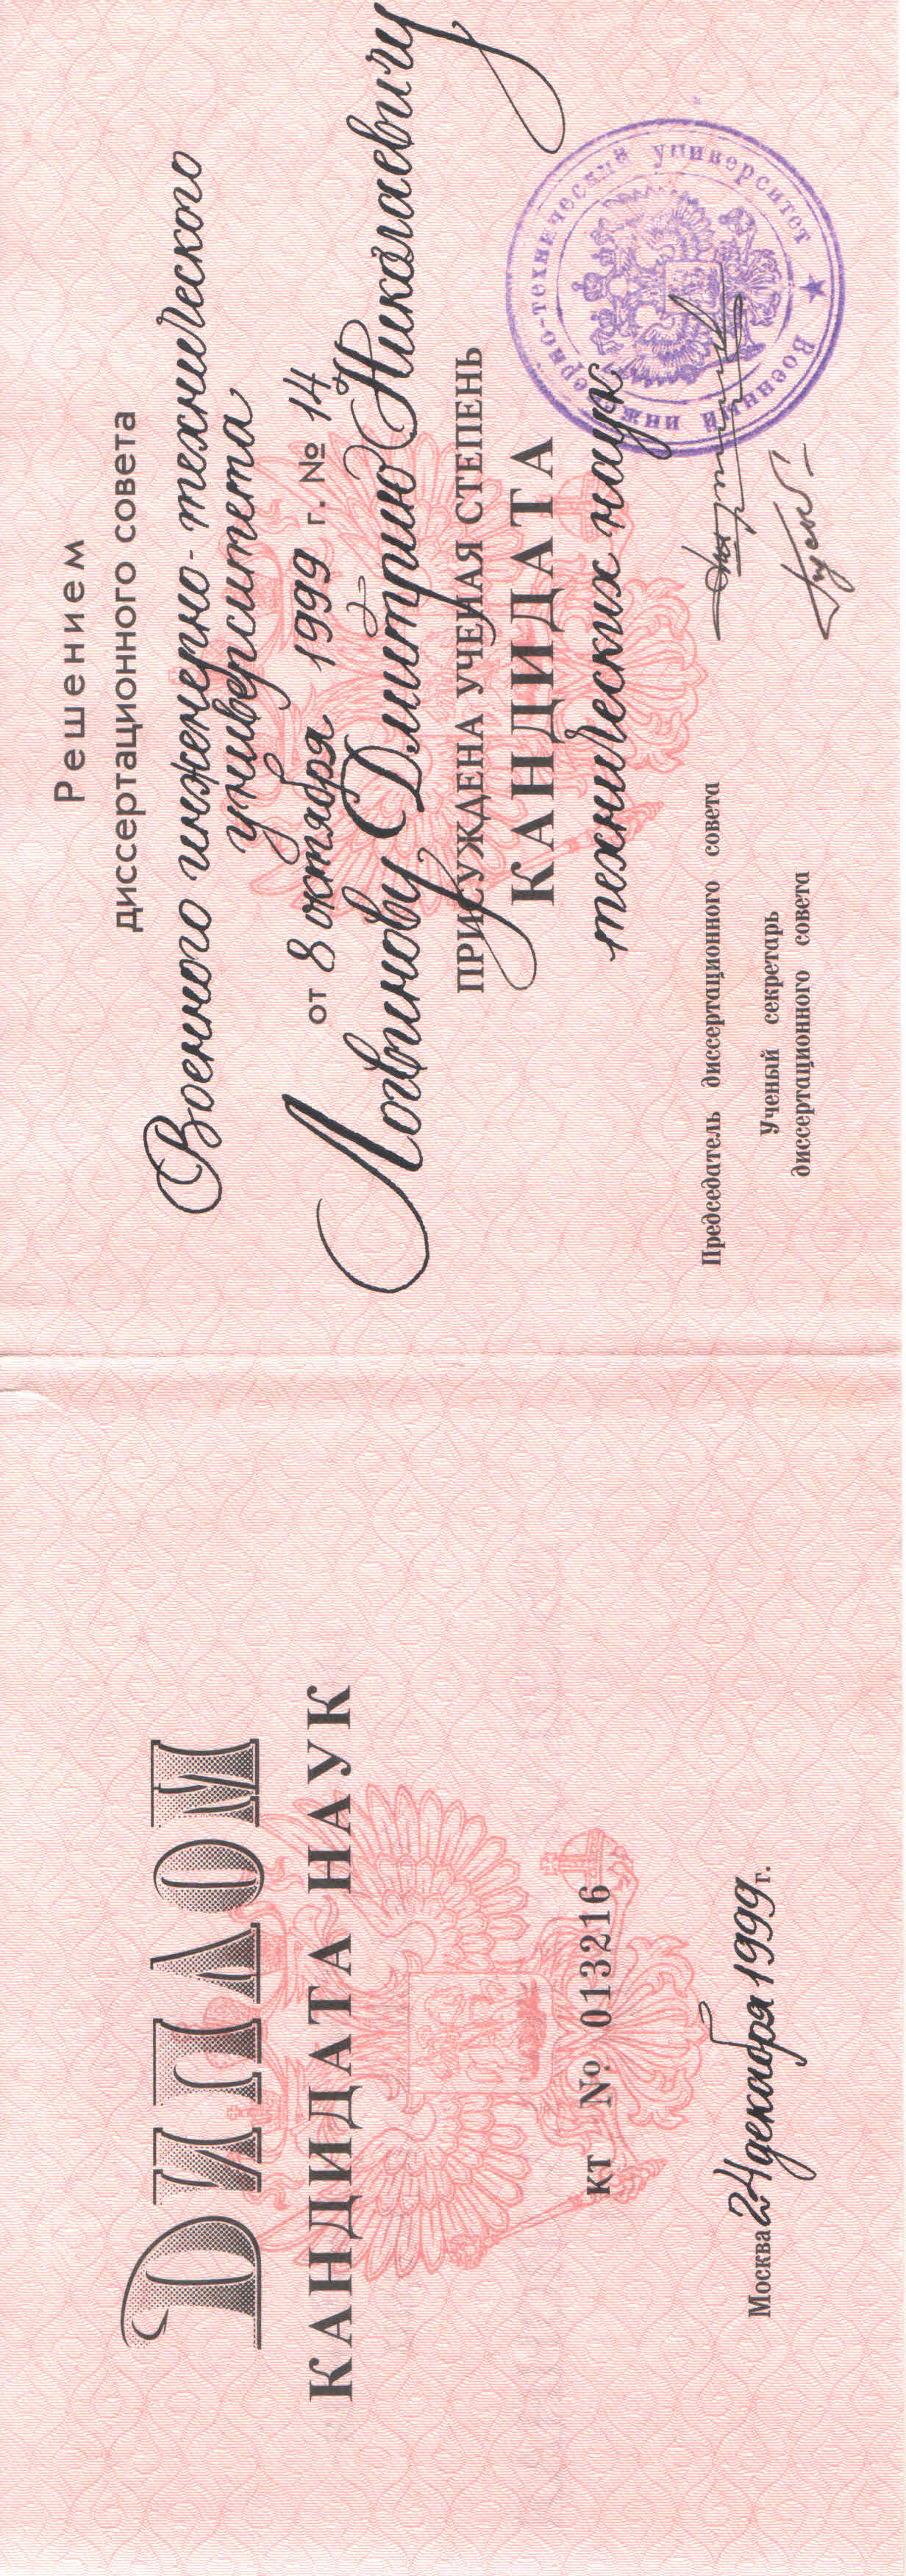 ДИПЛОМ
КАНДИДАТА НАУК
КТ № 013216
Москва 24 декабря 1999 г.
Решением
диссертационного совета
Военного инженерно-технического
университета
от 8 октября 1999 г. № 14
Логвинову Дмитрию Николаевичу
ПРИСУЖДЕНА УЧЕНАЯ СТЕПЕНЬ
КАНДИДАТА
технических наук
Председатель диссертационного совета
Ученый секретарь
диссертационного совета
Военный инженерно-технический университет